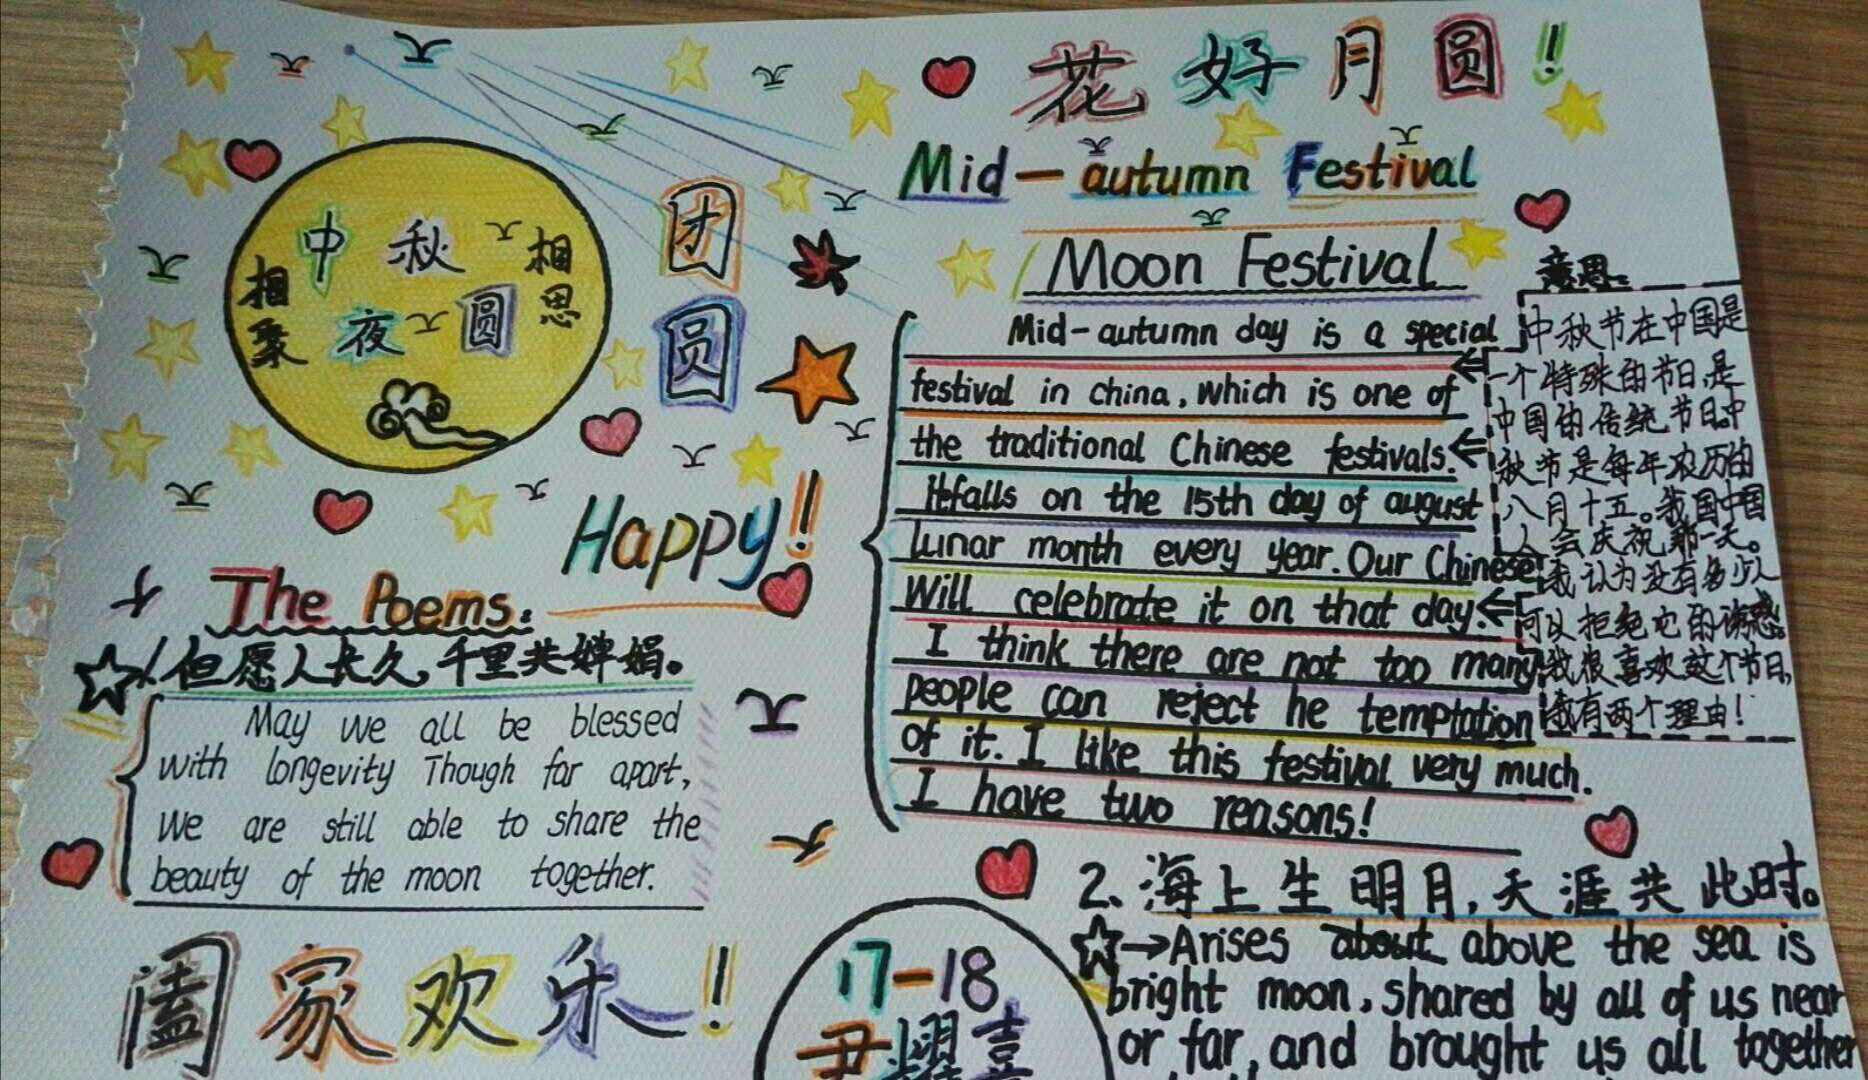 花好月圆!
Mid-autumn Festival
Moon Festival
中秋
夜圆
相聚
相思
团圆
Happy!
Mid-autumn day is a special
festival in china, which is one of
the traditional Chinese festivals.
It falls on the 15th day of august
lunar month every year. Our Chinese
Will celebrate it on that day.
I think there are not too many
people can reject he temptation
of it. I like this festival very much.
I have two reasons!
意思:
中秋节在中国是
一个特殊的节日,是
中国的传统节日.中
秋节是每年农历的
八月十五。我国中国
人会庆祝那一天。
我认为没有多少人
可以拒绝它的诱惑。
我很喜欢这个节日,
我有两个理由!
The Poems:
1、但愿人长久,千里共婵娟。
May we all be blessed
with longevity Though far apart,
We are still able to share the
beauty of the moon together.
阖家欢乐!
17-18
尹耀喜
2、海上生明月,天涯共此时。
→Arises about above the sea is
bright moon, shared by all of us near
or far, and brought us all together